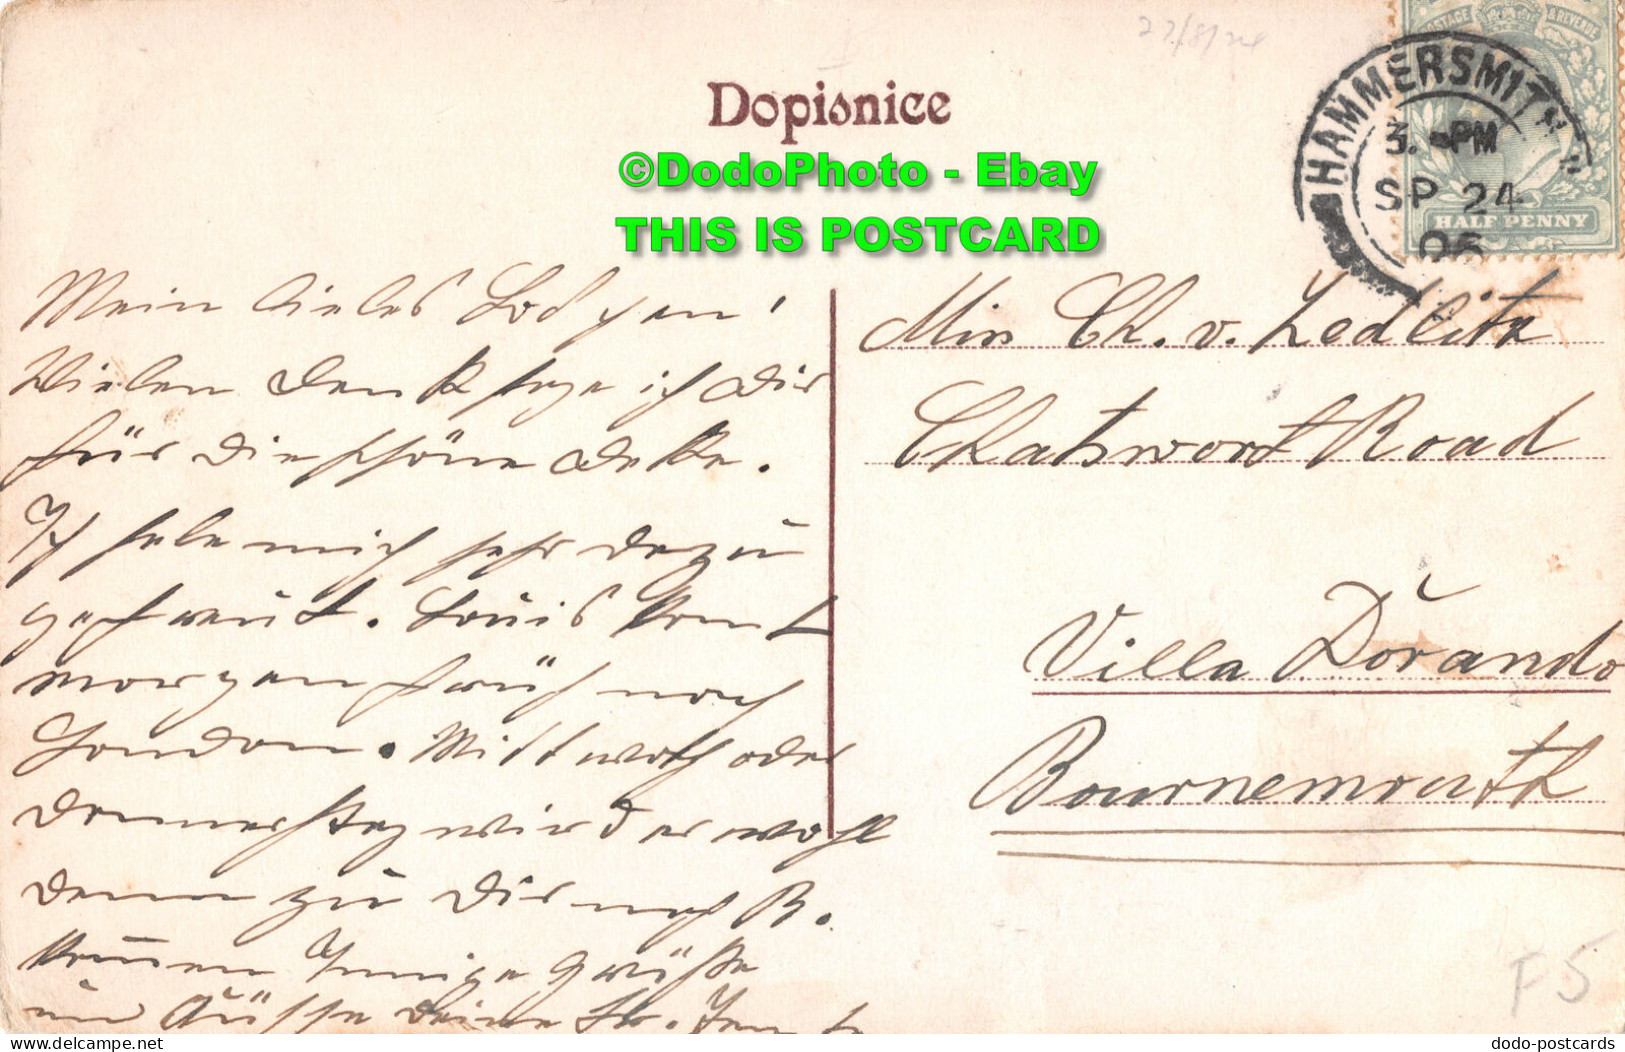 Dopisnice
©DodoPhoto - Ebay
THIS IS POSTCARD
POSTAGE & REVENUE
HAMMERSMITH
3. PM
SP 24
06
HALF PENNY
Mein liebes
Vielen Dank sage ich Dir
für die schöne Karte.
Ich habe mich sehr dazu
gefreut. Louis kommt
morgen früh nach
London. Mittwoch oder
Donnerstag wird er wohl
dann zu Dir nach B.
kommen Innige Grüße
und Küsse Deine
Miss Ch. v. Zedlitz
Chatswort Road
Villa Dorando
Bournemouth
F5
dodo-postcards